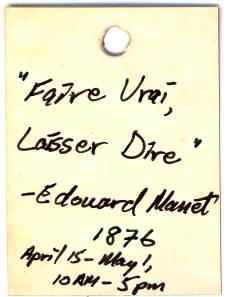 "Faire Vrai,
Laisser Dire"
-Edouard Manet
1876
April 15 - May 1,
10 AM - 5 pm